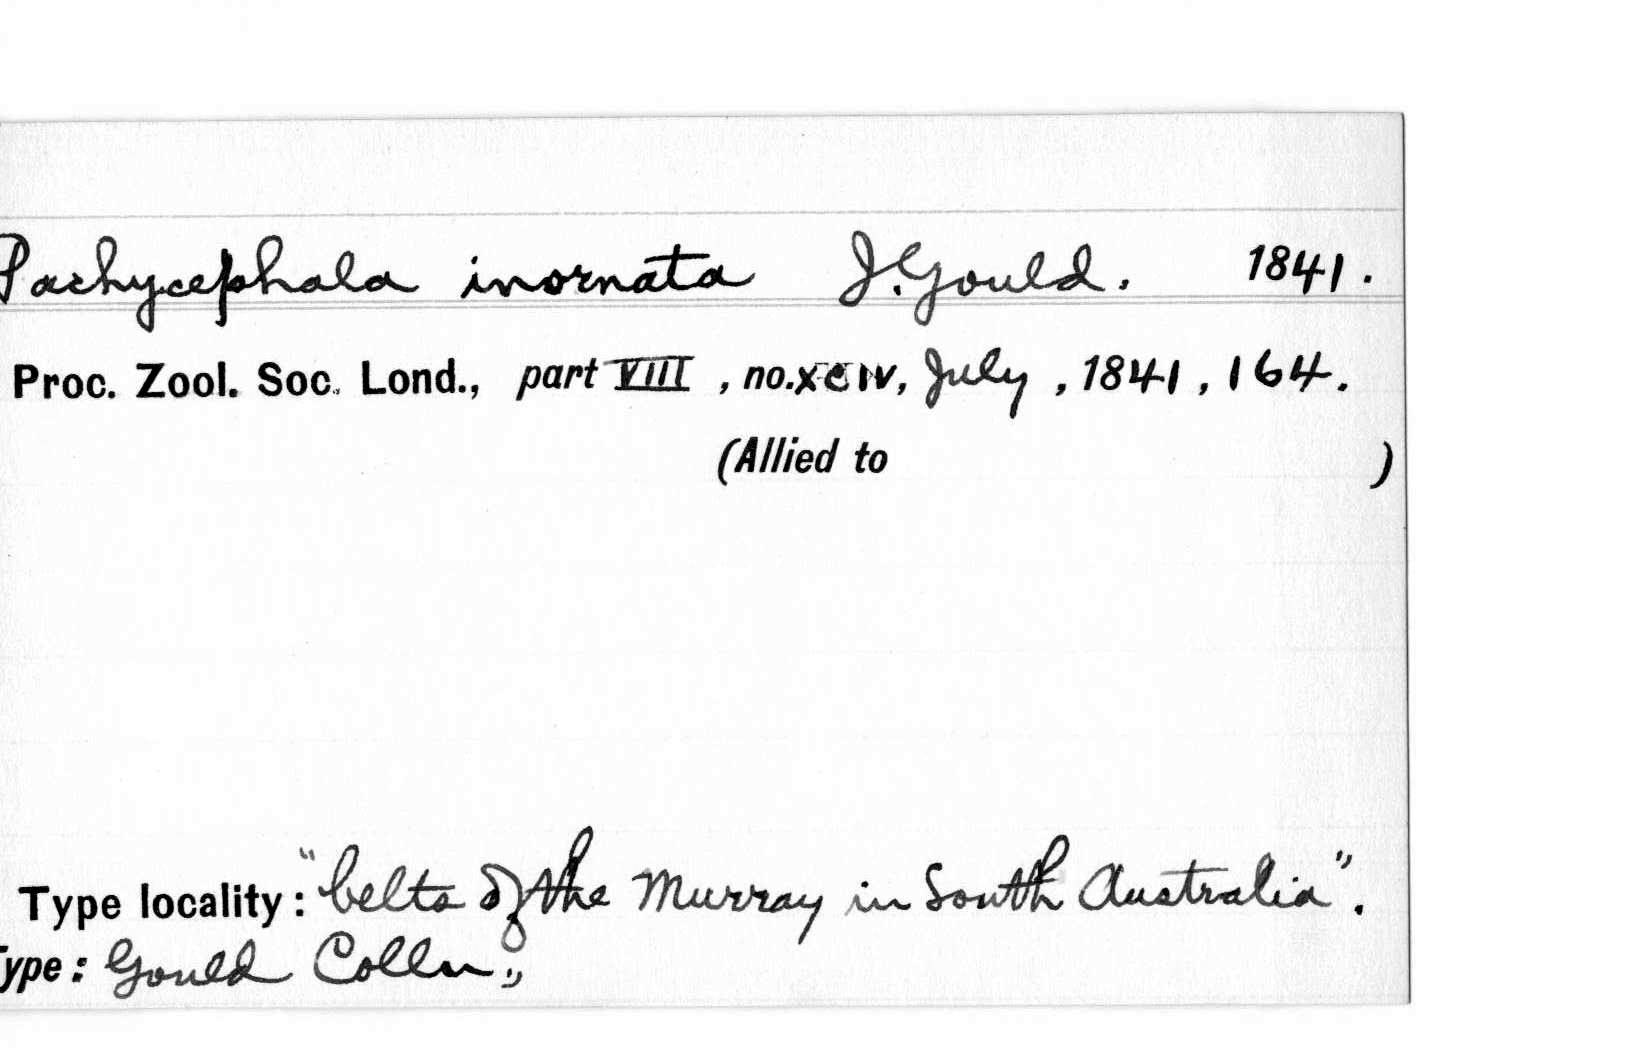 Pachycephala inornata J. Gould. 1841.
Proc. Zool. Soc. Lond., part VIII, no. xciv, July, 1841, 164.
(Allied to )
Type locality: "belts of the Murray in South Australia".
Type: Gould Colln.,